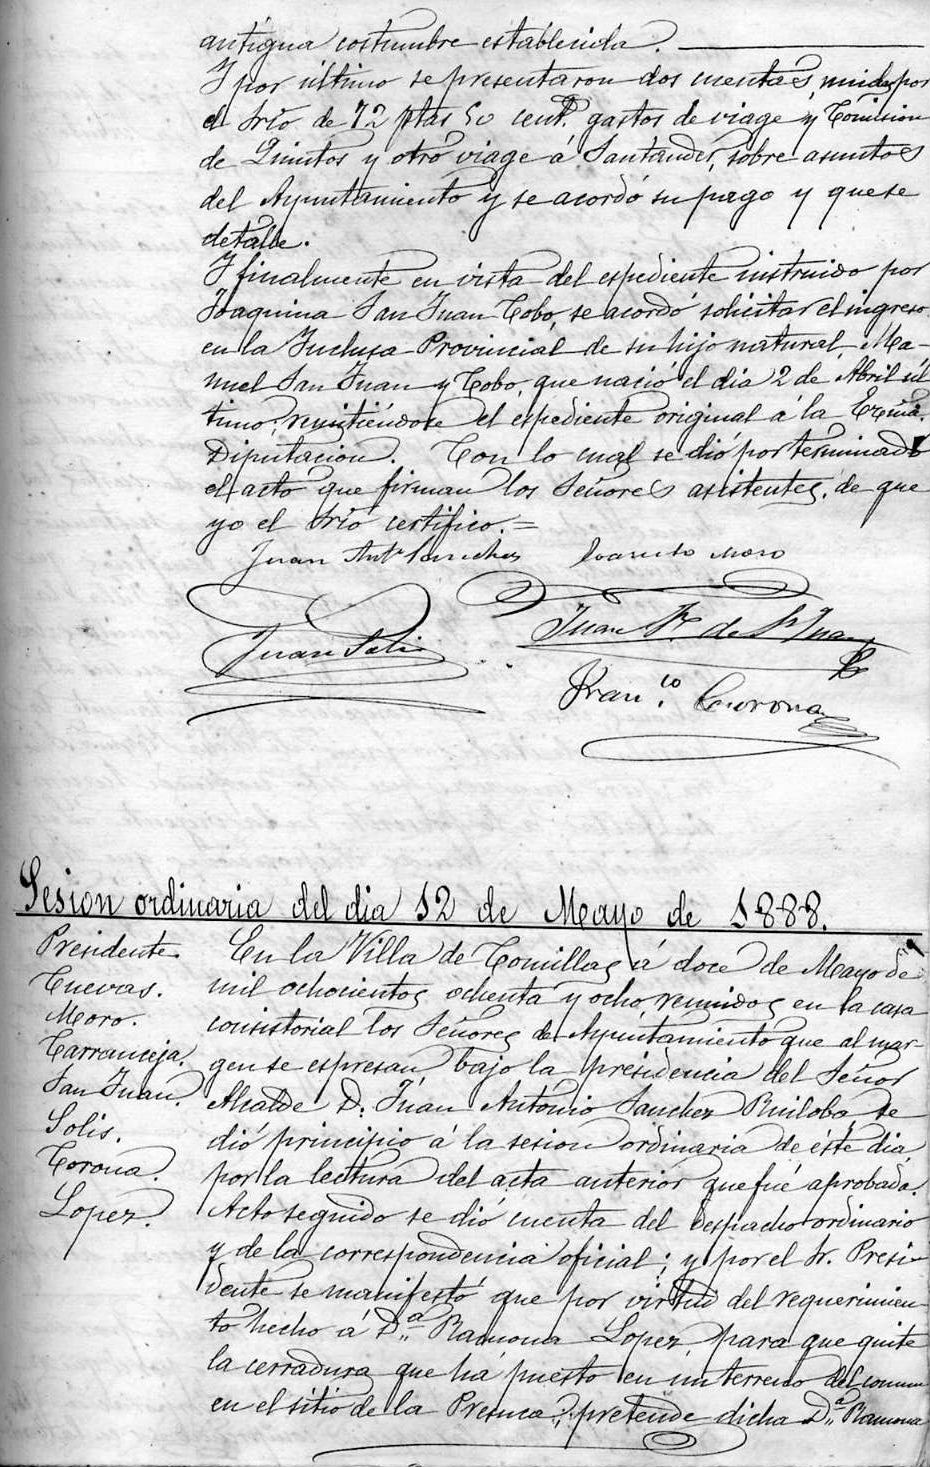 antigua costumbre establecida.
Y por último se presentaron dos cuentas, por
el Srio de 72 ptas 50 cent. gastos de viage y Comision
de Quintos y otro viage á Santander, sobre asuntos
del Ayuntamiento y se acordó su pago y que se
detalle.
Y finalmente en vista del espediente instruido por
Joaquina San Juan Cobo, se acordó solicitar el ingreso
en la Inclusa Provincial de su hijo natural, Ma-
nuel San Juan y Cobo, que nació el dia 2 de Abril úl
timo; remitiéndose el espediente original á la Excma.
Diputacion. Con lo cual se dió por terminado
el acto que firman los Señores asistentes, de que
yo el Srio certifico.=
Juan Antº Sanchez
Moro
Juan Solis
Juan de S. Juan
Fran.co Corona
Sesion ordinaria del dia 12 de Mayo de 1888.
Presidente.
Cuevas.
Moro.
Carranceja.
San Juan.
Solis.
Corona.
Lopez.
En la Villa de Comillas á doce de Mayo de
mil ochocientos ochenta y ocho, reunidos en la casa
consistorial los Señores de Ayuntamiento que al mar-
gen se espresan bajo la presidencia del Señor
Alcalde D. Juan Antonio Sanchez Ruiloba, se
dió principio á la sesion ordinaria de éste dia,
por la lectura del acta anterior que fué aprobada.
Acto seguido se dió cuenta del despacho ordinario
y de la correspondencia oficial; y por el Sr. Presi-
dente se manifestó que por virtud del requerimien
to hecho á D.ª Ramona Lopez, para que quite
la cerradura que há puesto en un terreno del comun
en el sitio de la Presuca, pretende dicha D.ª Ramona